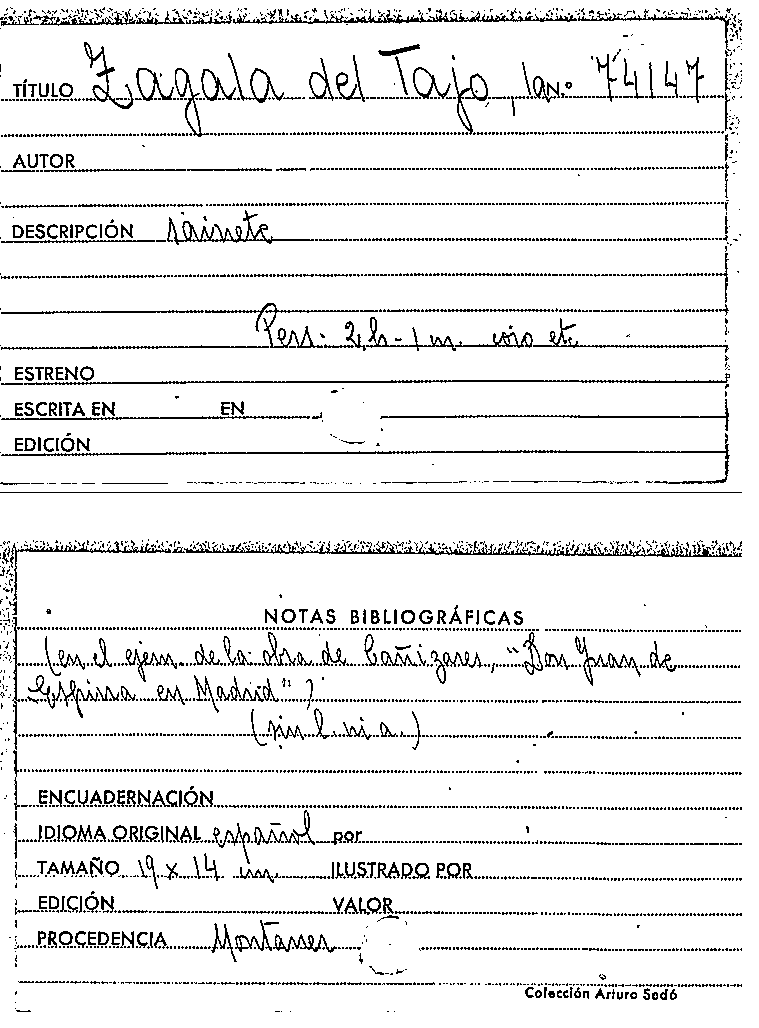 TÍTULO Zagala del Tajo, la N.º 74147
AUTOR
DESCRIPCIÓN sainete
Pers. 2 h - 1 m. coro etc
ESTRENO
ESCRITA EN EN
EDICIÓN
NOTAS BIBLIOGRÁFICAS
(en el ejem. de la obra de Cañizares, "Don Juan de
Espina en Madrid")
(sin l. ni a.)
ENCUADERNACIÓN
IDIOMA ORIGINAL español por
TAMAÑO 19 x 14 cm. ILUSTRADO POR
EDICIÓN VALOR
PROCEDENCIA Montaner
Colección Arturo Sedó